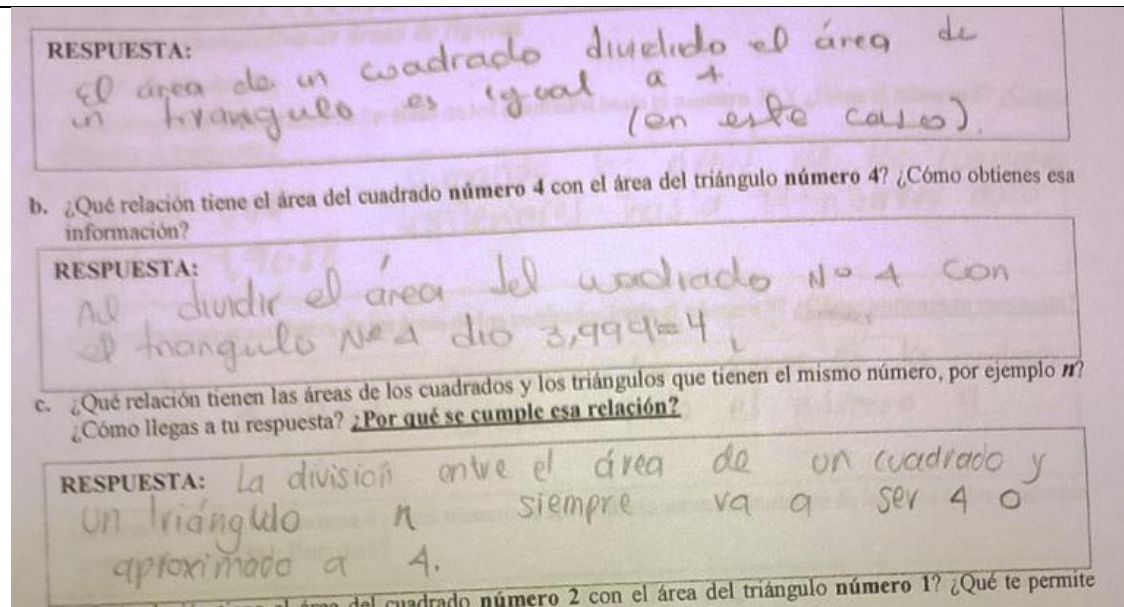 RESPUESTA:
El área de un cuadrado dividido el área de
un triangulo es igual a 4
(en este caso).
b. ¿Qué relación tiene el área del cuadrado número 4 con el área del triángulo número 4? ¿Cómo obtienes esa
información?
RESPUESTA:
Al dividir el área del cuadrado Nº 4 con
el triangulo Nº 4 dio 3,994=4
c. ¿Qué relación tienen las áreas de los cuadrados y los triángulos que tienen el mismo número, por ejemplo n?
¿Cómo llegas a tu respuesta? ¿Por qué se cumple esa relación?
RESPUESTA: La división entre el área de un cuadrado y
un triángulo n siempre va a ser 4 o
aproximado a 4.
del cuadrado número 2 con el área del triángulo número 1? ¿Qué te permite